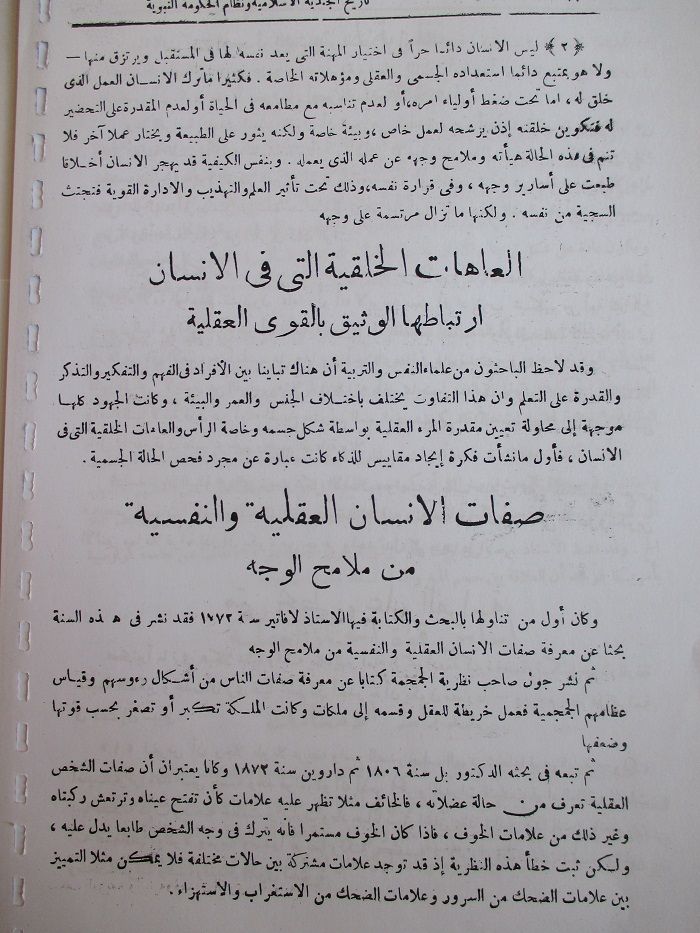 تاريخ الجندية الاسلامية ونظام الحكومة النبوية
﴿ ٢ ﴾ ليس الانسان دائما حراً فى اختيار المهنة التى يعد نفسه لها فى المستقبل ويرتزق منها —
ولا هو يمتنع دائما استعداده الجسمى والعقلى ومؤهلاته الخاصة . فكثيرا ما ترك الانسان العمل الذى
خلق له ، اما تحت ضغط أولياء امره، أو لعدم تناسبه مع مطامعه فى الحياة أو لعدم المقدرة على التحضير
له فتكوين خلقته إذن يرشحه لعمل خاص ، وبيئة خاصة ولكنه يثور على الطبيعة ويختار عملا آخر فلا
تنم فى هذه الحالة هيأته وملامح وجهه عن عمله الذى يعمله . وبنفس الكيفية قد يهجر الانسان أخلاقا
طبعت على أسارير وجهه ، وفى قرارة نفسه، وذلك تحت تأثير العلم والتهذيب والادارة القوية فتجتث
السجية من نفسه . ولكنها ما تزال مرتسمة على وجهه
العاهات الخلقية التى فى الانسان
ارتباطها الوثيق بالقوى العقلية
وقد لاحظ الباحثون من علماء النفس والتربية أن هناك تباينا بين الأفراد فى الفهم والتفكير والتذكر
والقدرة على التعلم وان هذا التفاوت يختلف باختلاف الجنس والعمر والبيئة ، وكانت الجهود كلها
موجهة إلى محاولة تعيين مقدرة المرء العقلية بواسطة شكل جسمه وخاصة الرأس والعاهات الخلقية التى فى
الانسان ، فأول ما نشأت فكرة إيجاد مقاييس للذكاء كانت عبارة عن مجرد فحص الحالة الجسمية .
صفات الانسان العقلية والنفسية
من ملامح الوجه
وكان أول من تناولها بالبحث والكتابة فيها الاستاذ لافاتير سنة ١٧٧٢ فقد نشر فى هذه السنة
بحثا عن معرفة صفات الانسان العقلية والنفسية من ملامح الوجه
ثم نشر جون صاحب نظرية الجمجمة كتابا عن معرفة صفات الناس من أشكال رءوسهم وقياس
عظامهم الجمجمية فعمل خريطة للعقل وقسمه إلى ملكات وكانت الملكة تكبر أو تصغر بحسب قوتها
وضعفها
ثم تبعه فى بحثه الدكتور بل سنة ١٨٠٦ ثم داروين سنة ١٨٧٢ وكانا يعتبران أن صفات الشخص
العقلية تعرف من حالة عضلاته ، فالخائف مثلا تظهر عليه علامات كأن تفتح عيناه وترتعش ركبتاه
وغير ذلك من علامات الخوف ، فاذا كان الخوف مستمرا فأنه يترك فى وجه الشخص طابعا يدل عليه ،
ولكن ثبت خطأ هذه النظرية إذ قد توجد علامات مشتركة بين حالات مختلفة فلا يمكن مثلا التمييز
بين علامات الضحك من السرور وعلامات الضحك من الاستغراب والاستهزاء .